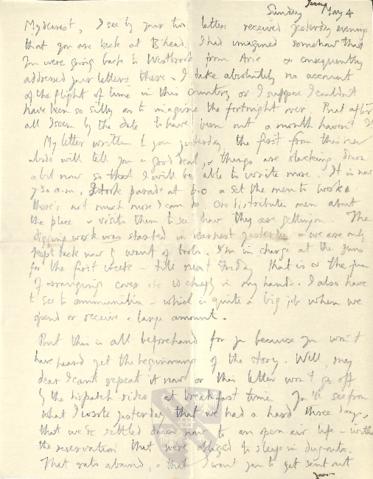 Sunday May 4
My dearest, I see by your two letters received yesterday evening
that you are back at B'head. I had imagined somehow that
you were going back to Westbrook from Arie & consequently
addressed your letters there. I take absolutely no account
of the flight of time in this country or I suppose I couldn't
have been so silly as to imagine the fortnight over. But after
all I see by the date I have been out a month haven't I?
My letter written to you yesterday, the first from this new
abode will tell you a good deal, & things are slacking down
a bit now so that I will be able to write more. It is now
7.30 a.m. I took parade at 6.0 & set the men to work
there; not much more I can do but distribute men about
the place & visit them to see how they are getting on. The
digging work was started in earnest yesterday & we are only
kept back now by want of tools. I'm in charge at the guns
for the first week - till next Friday, that is & the fun
of arranging cover etc is chiefly in my hands. I also have
to see to ammunition - which is quite a big job when we
spend or receive a large amount.
But this is all beforehand for you because you won't
have heard yet the beginning of the story. Well, my
dear I can't repeat it now or this letter won't go off
by the dispatch rider at breakfast time. You'll see from
what I wrote yesterday that we had a hard three days,
that we've settled down now to an open air life - with
the reservation that we're obliged to sleep in dugouts.
That sounds absurd, & that I want you to get sent out